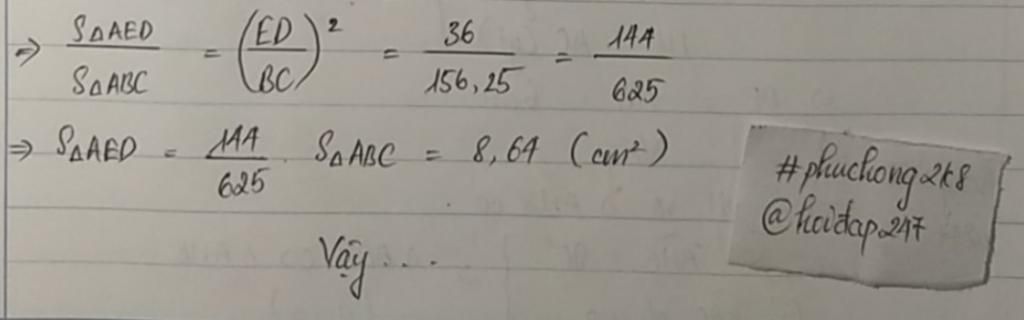 => SΔAED / SΔABC = (ED / BC)² = 36 / 156,25 = 144 / 625
=> SΔAED = 144 / 625 . SΔABC = 8,64 (cm²)
#phuchong2k8
@hoidap247
Vậy ....